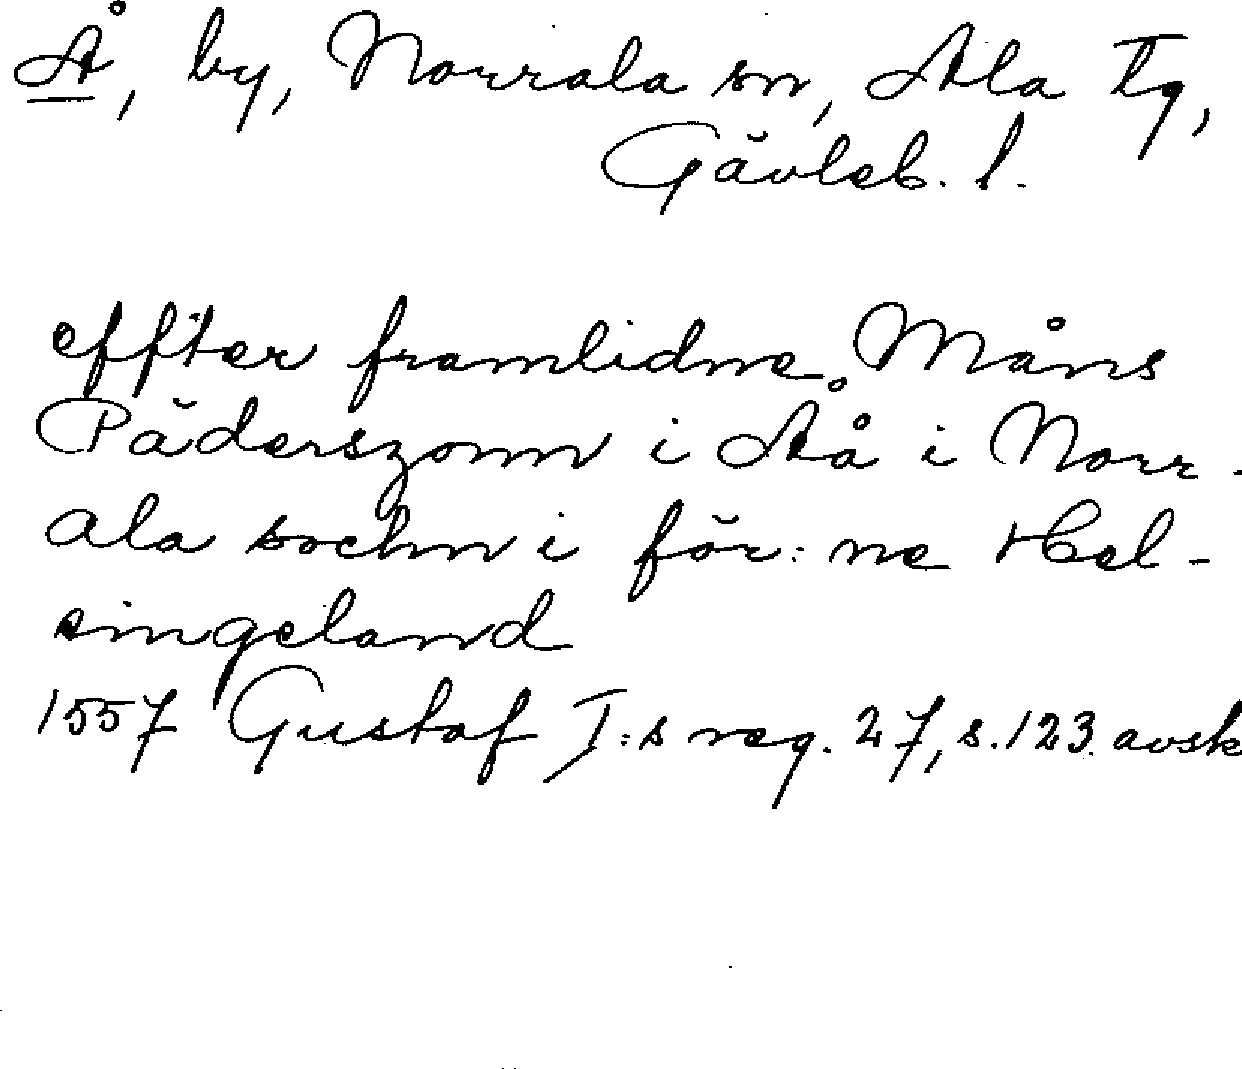 Å, by, Norrala sn, Ala tg,
Gävleb. l.
effter framlidne Måns
Päderszonn i Åå i Norr-
ala sochn i för:ne Hel-
singeland
1557 Gustaf I:s reg. 27, s. 123. avsk